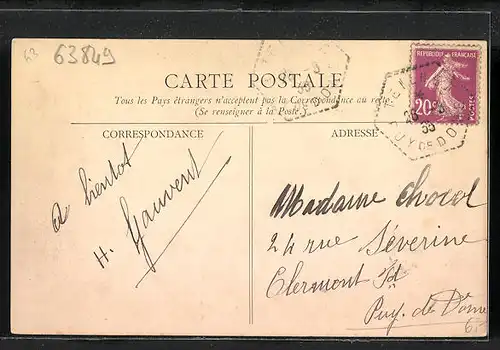 63 63849
CARTE POSTALE
Tous les Pays étrangers n'acceptent pas la Correspondance au recto
(Se renseigner à la Poste)
CORRESPONDANCE
ADRESSE
RÉPUBLIQUE FRANÇAISE
20c
POSTES
PUY DE DOME
A bientot
H. Gauvent
Madame Chocol
24 rue Séverine
Clermont Fd
Puy. de Dôme